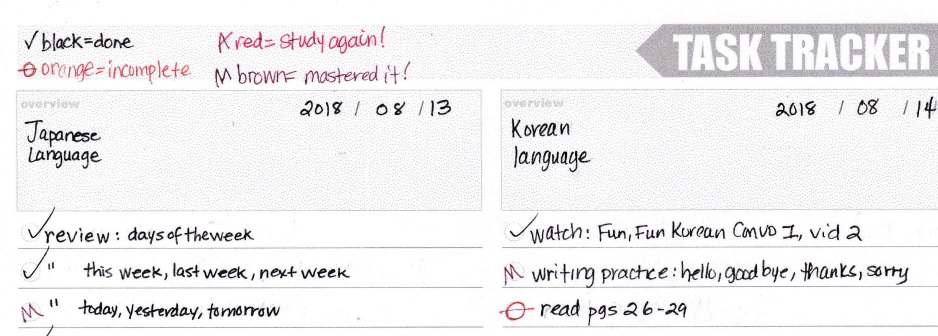 ✓ black=done
X red= study again!
TASK TRACKER
⊖ orange=incomplete
M brown= mastered it!
overview
2018 / 08 / 13
Japanese
Language
overview
2018 / 08 / 14
Korean
language
✓ review: days of the week
✓ " this week, last week, next week
M " today, yesterday, tomorrow
✓ watch: Fun, Fun Korean Convo I, vid 2
M writing practice: hello, good bye, thanks, sorry
⊖ read pgs 26-29